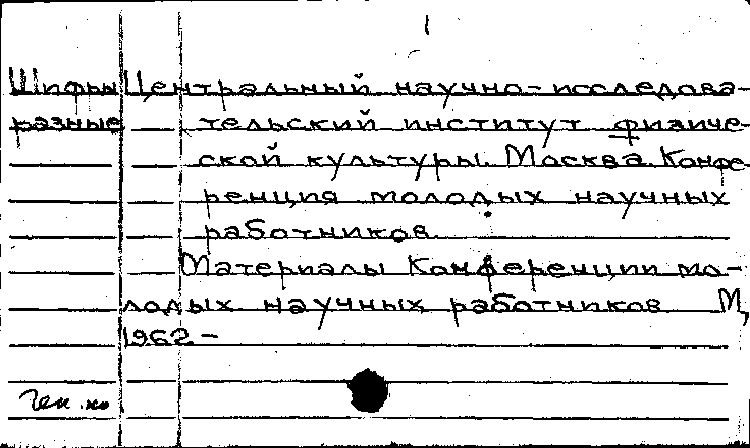 Шифры Центральный научно-исследова-
разные тельский институт физиче-
ской культуры. Москва. Конфе-
ренция молодых научных
работников.
Материалы Конференции мо-
лодых научных работников М,
1962-